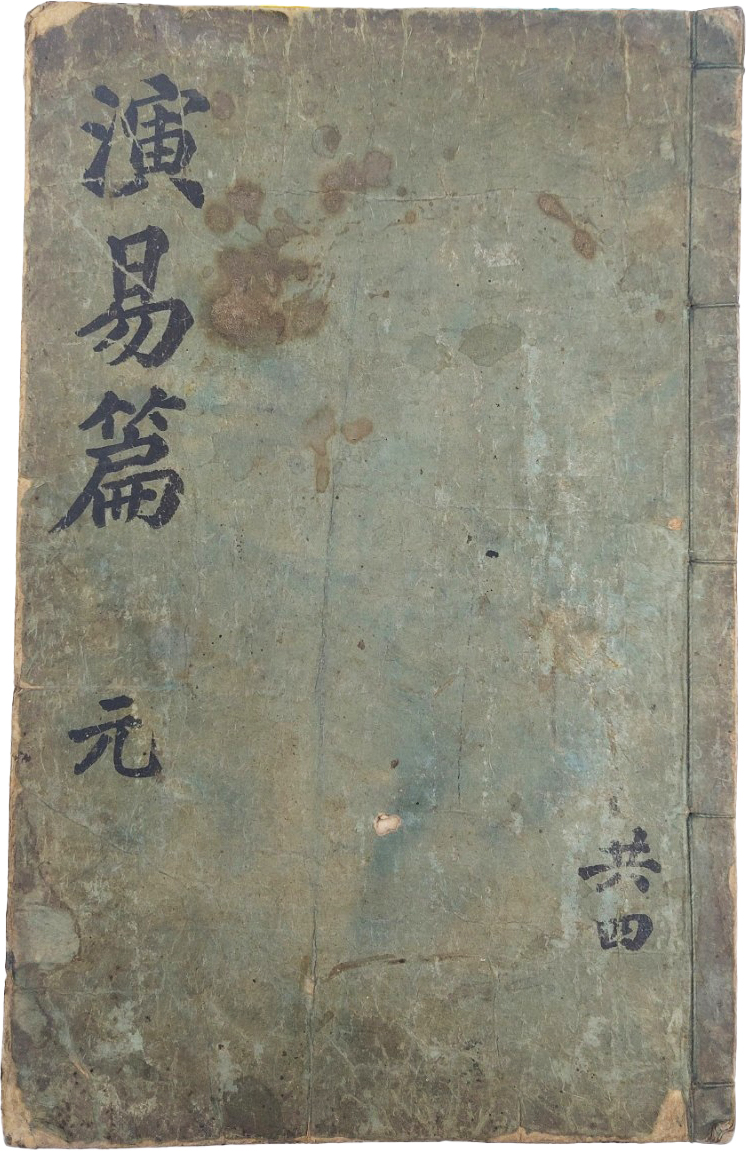 演易篇 元
共四